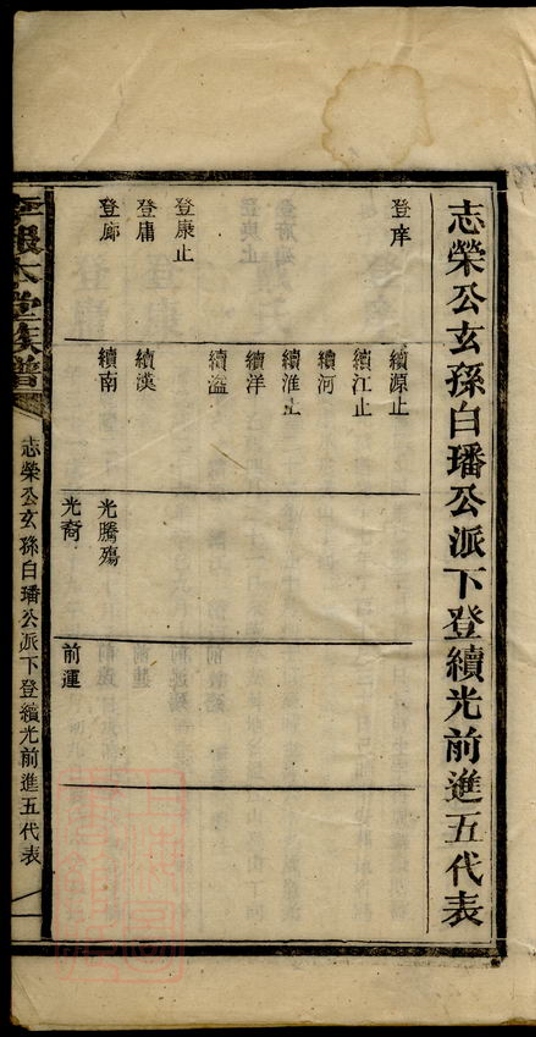 志榮公玄孫白璠公派下登續光前進五代表
登庠
登康止
登庸
登廊
續源止
續江止
續河
續淮止
續洋
續溢
續漢
續南
光騰殤
光裔
前運
李報本堂族譜
志榮公玄孫白璠公派下登續光前進五代表
一